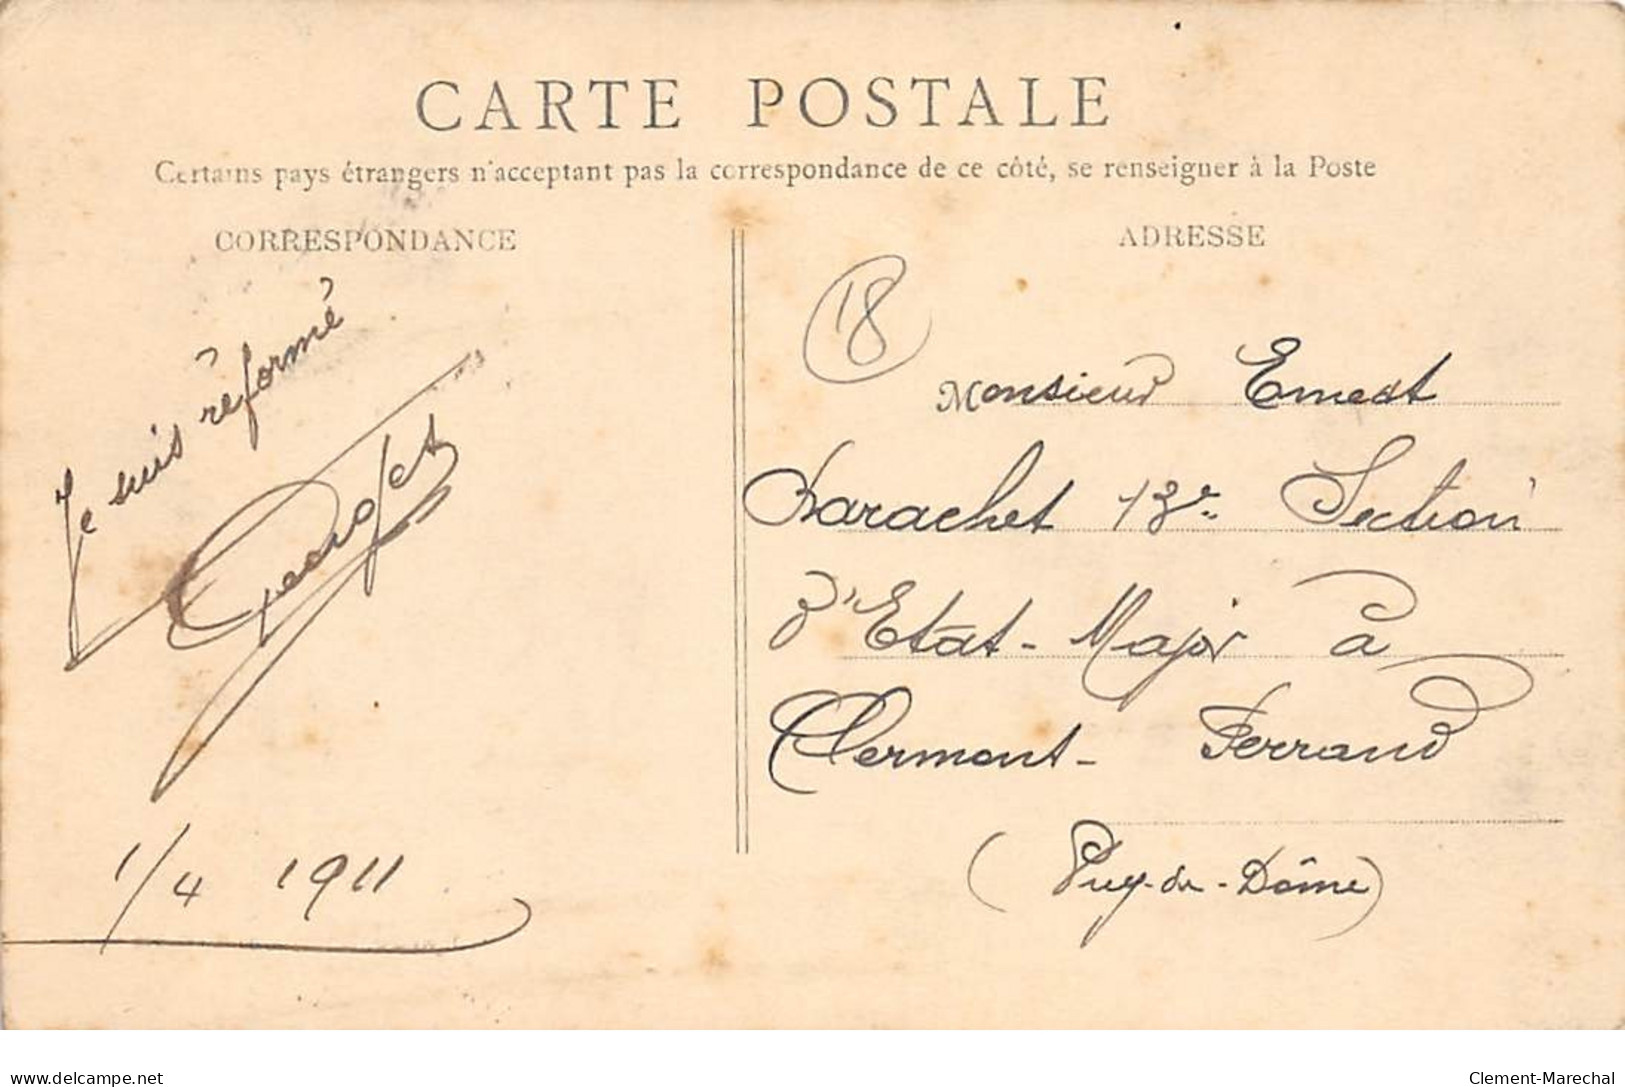 CARTE POSTALE
Certains pays étrangers n'acceptant pas la correspondance de ce côté, se renseigner à la Poste
CORRESPONDANCE
ADRESSE
Je suis réformé
Georges
1/4 1911
18
Monsieur Ernest
13e Section
d'Etat-Major à
Clermont-Ferrand
(Puy-du-Dôme)
delcampe.net
Clement-Marechal